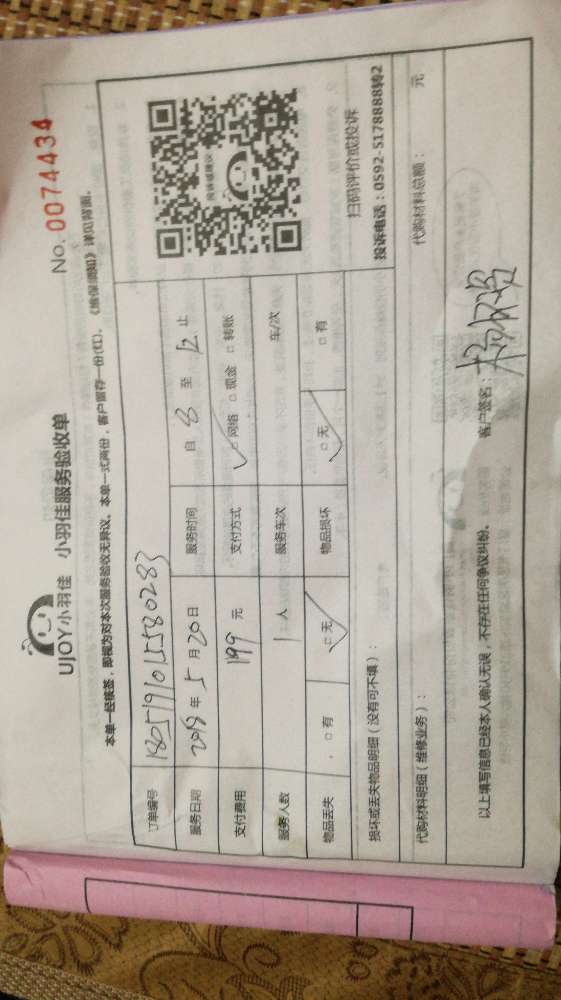 UJOY小羽佳 小羽佳服务验收单
No. 0074434
本单一经核签，即视为对本次服务验收无异议。本单一式两份，客户留存一份(红)，《维保须知》详见背面。
订单编号
服务日期 2018 年 5 月 20 日 服务时间 自 8 至 12 止
支付费用 199 元 支付方式 □网络 □现金 □转账
服务人数 1 人 服务车次 车/次
物品丢失 □有 □无 物品损坏 □无 □有
扫码评价或投诉
投诉电话：0592-5178888转2
损坏或丢失物品明细（没有可不填）：
代购材料明细（维修业务）： 代购材料总额： 元
以上填写信息已经本人确认无误，不存在任何争议纠纷。 客户签名：